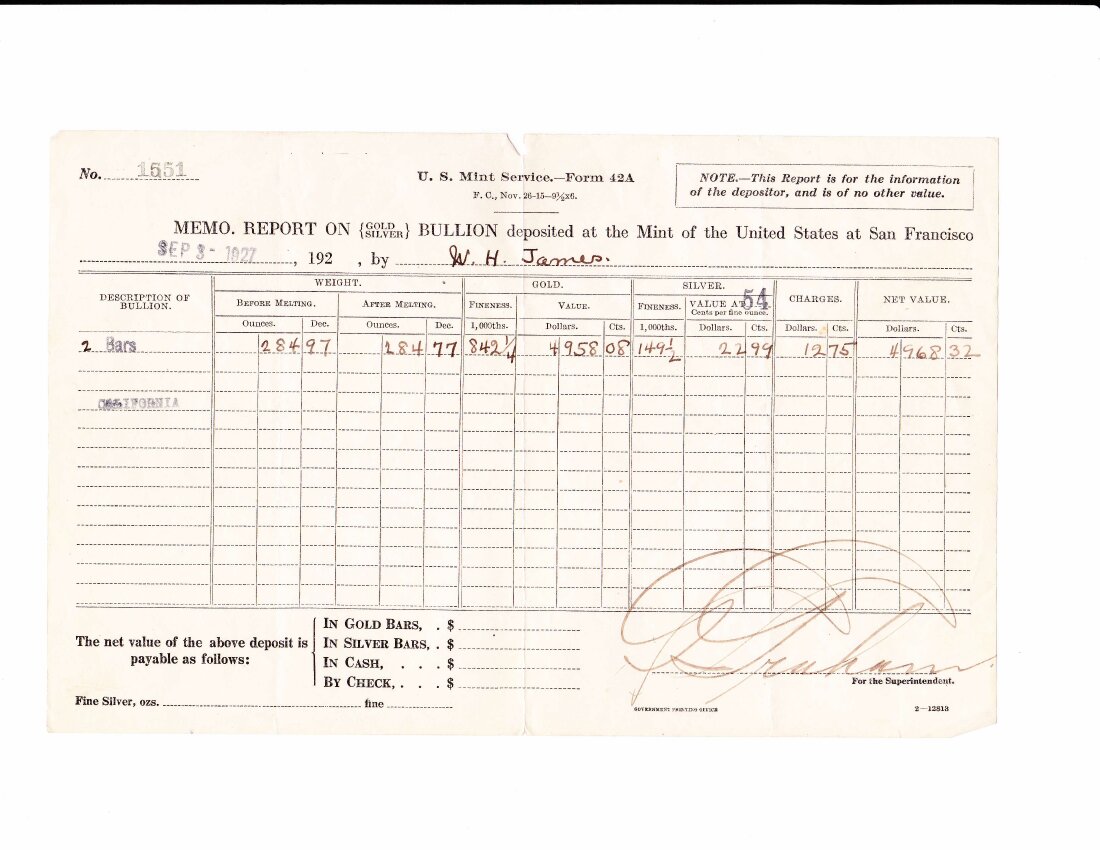 No. 1551
U. S. Mint Service.—Form 42A
F. C., Nov. 26-15—9½x6.
NOTE.—This Report is for the information
of the depositor, and is of no other value.
MEMO. REPORT ON {GOLD SILVER} BULLION deposited at the Mint of the United States at San Francisco
SEP 3 - 1927, 192 , by W. H. James.
DESCRIPTION OF BULLION. WEIGHT. GOLD. SILVER. CHARGES. NET VALUE.
BEFORE MELTING. AFTER MELTING. FINENESS. VALUE. FINENESS. VALUE AT 54 Cents per fine ounce.
Ounces. Dec. Ounces. Dec. 1,000ths. Dollars. Cts. 1,000ths. Dollars. Cts. Dollars. Cts. Dollars. Cts.
2 Bars 284 97 284 77 842¼ 4958 08 149½ 22 99 12 75 4968 32
CALIFORNIA
The net value of the above deposit is
payable as follows:
IN GOLD BARS, . $
IN SILVER BARS, . $
IN CASH, . . . $
BY CHECK, . . . $
Graham
For the Superintendent.
Fine Silver, ozs. fine
GOVERNMENT PRINTING OFFICE
2—12813